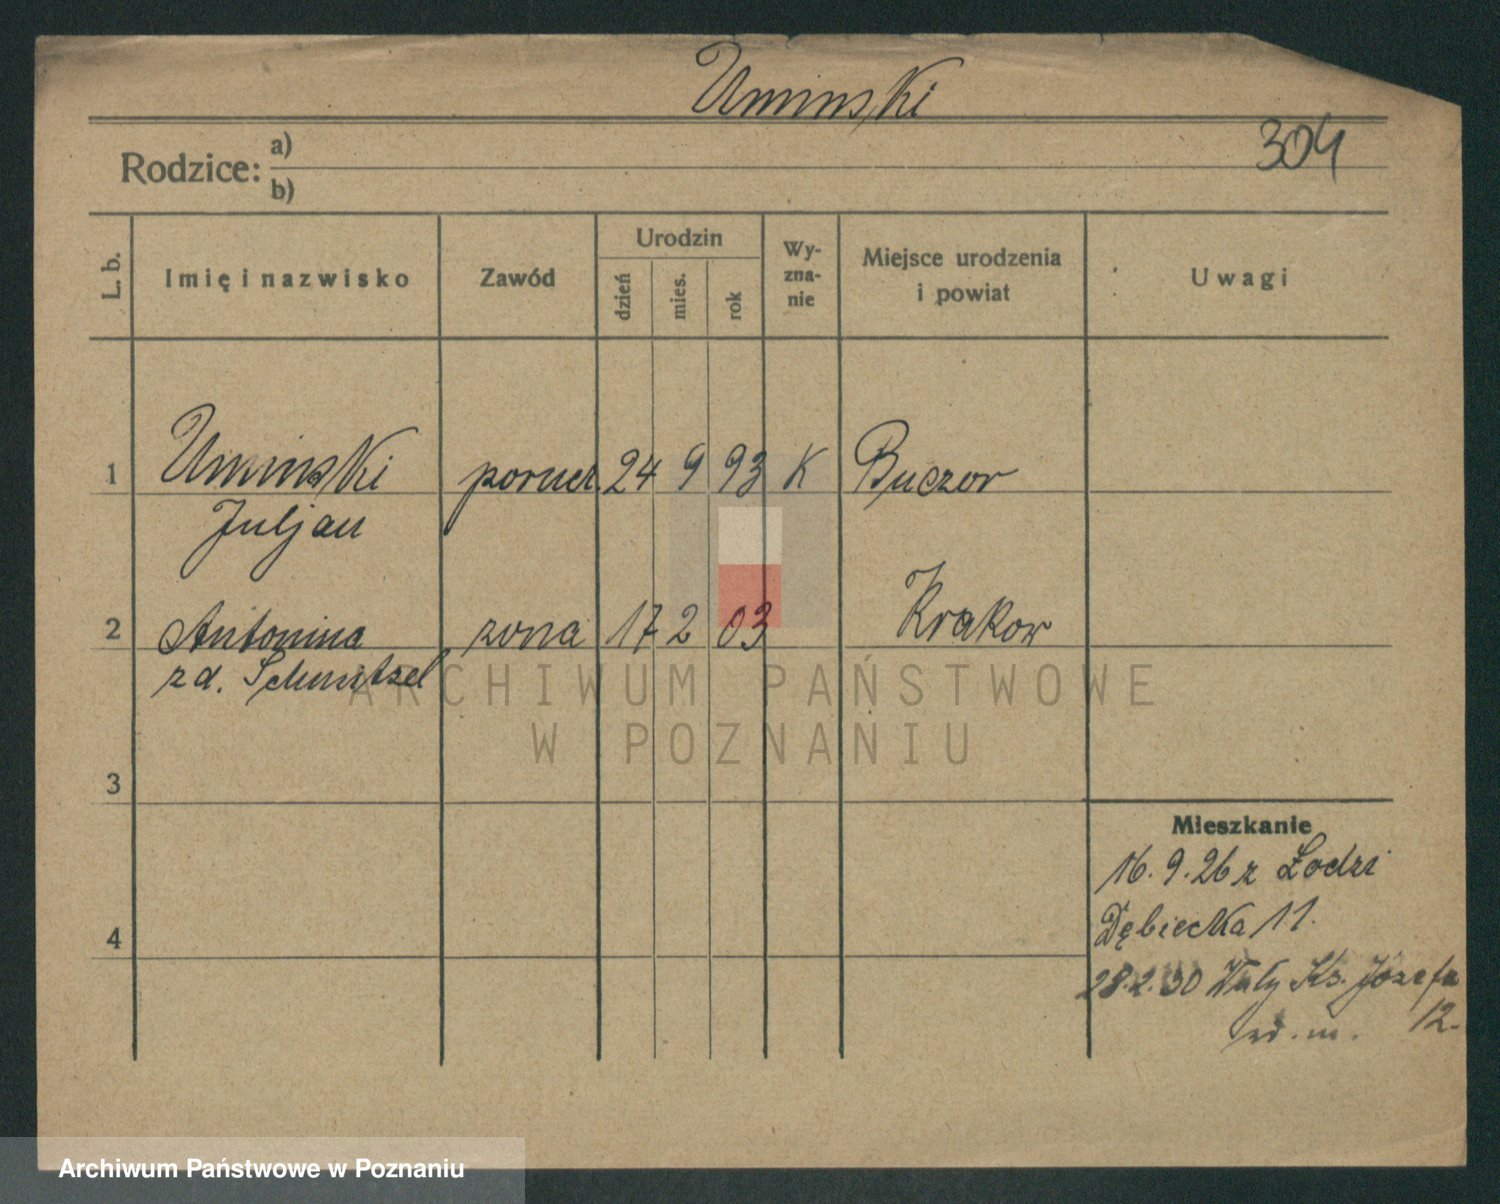 Uminski
304
Rodzice: a)
b)
L. b.
Imię i nazwisko
Zawód
Urodzin
dzień
mies.
rok
Wy-
zna-
nie
Miejsce urodzenia
i powiat
Uwagi
1 Uminski porucz. 24 9 93 K Buczor
Juljan
2 Antonina zona 17 2 03 Krakow
zd.
ARCHIWUM PAŃSTWOWE
W POZNANIU
3
Mieszkanie
16.9.26 z Łodzi
Dębiecka 11.
4
28.2.30 Wały Ks. Józefa
12.
Archiwum Państwowe w Poznaniu